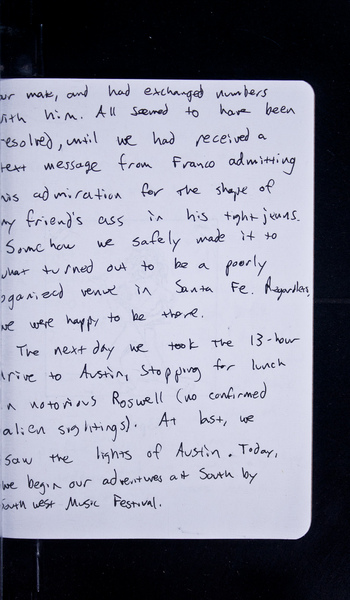 our make, and had exchanged numbers
with him. All seemed to have been
resolved, until we had received a
text message from Franco admitting
his admiration for the shape of
my friend's ass in his tight jeans.
Somehow we safely made it to
what turned out to be a poorly
oganized venue in Santa Fe. Regardless,
we were happy to be there.
The next day we took the 13-hour
drive to Austin, stopping for lunch
in notorious Roswell (no confirmed
alien sightings). At last, we
saw the lights of Austin. Today,
we begin our adventures at South by
South west Music Festival.